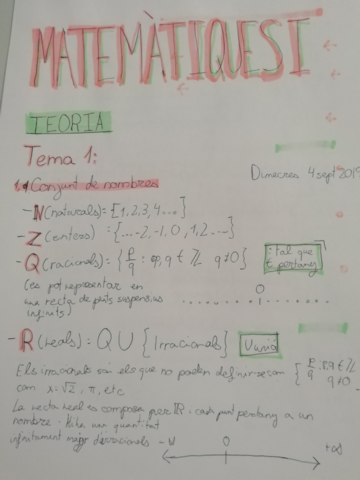 MATEMÀTIQUES I
TEORIA
Tema 1:
Dimecres 4 sept 2019
1.1 Conjunt de nombres
- N (naturals) = {1, 2, 3, 4....}
- Z (enters) = {....-2, -1, 0, 1, 2....}
- Q (racionals) = { p/q : p, q ∈ Z q ≠ 0 }
: tal que
∈ pertany
(es pot representar en
una recta de punts suspensius
infinits)
0
- R (reals) = Q U { Irracionals }
U unió
Els irracionals són els que no poden definir-se com { p/q : p, q ∈ Z q ≠ 0
com x = √2, π, etc
La recta real es composa per R i cada punt pertany a un
nombre. Hi ha una quantitat
infinitament major d'irracionals
- ∞ 0 + ∞